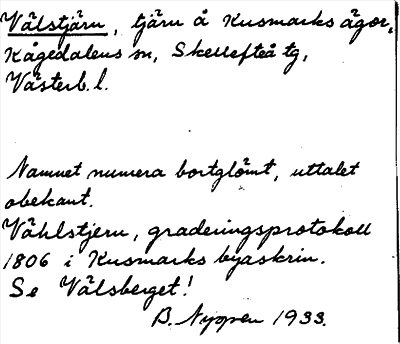 Välstjärn, tjärn å Kusmarks ägor,
Kågedalens sn, Skellefteå tg,
Västerb. l.
Namnet numera bortglömt, uttalet
obekant.
Vählstjern, graderingsprotokoll
1806 i Kusmarks byaskrin.
Se Välsberget!
B. Nyppen 1933.